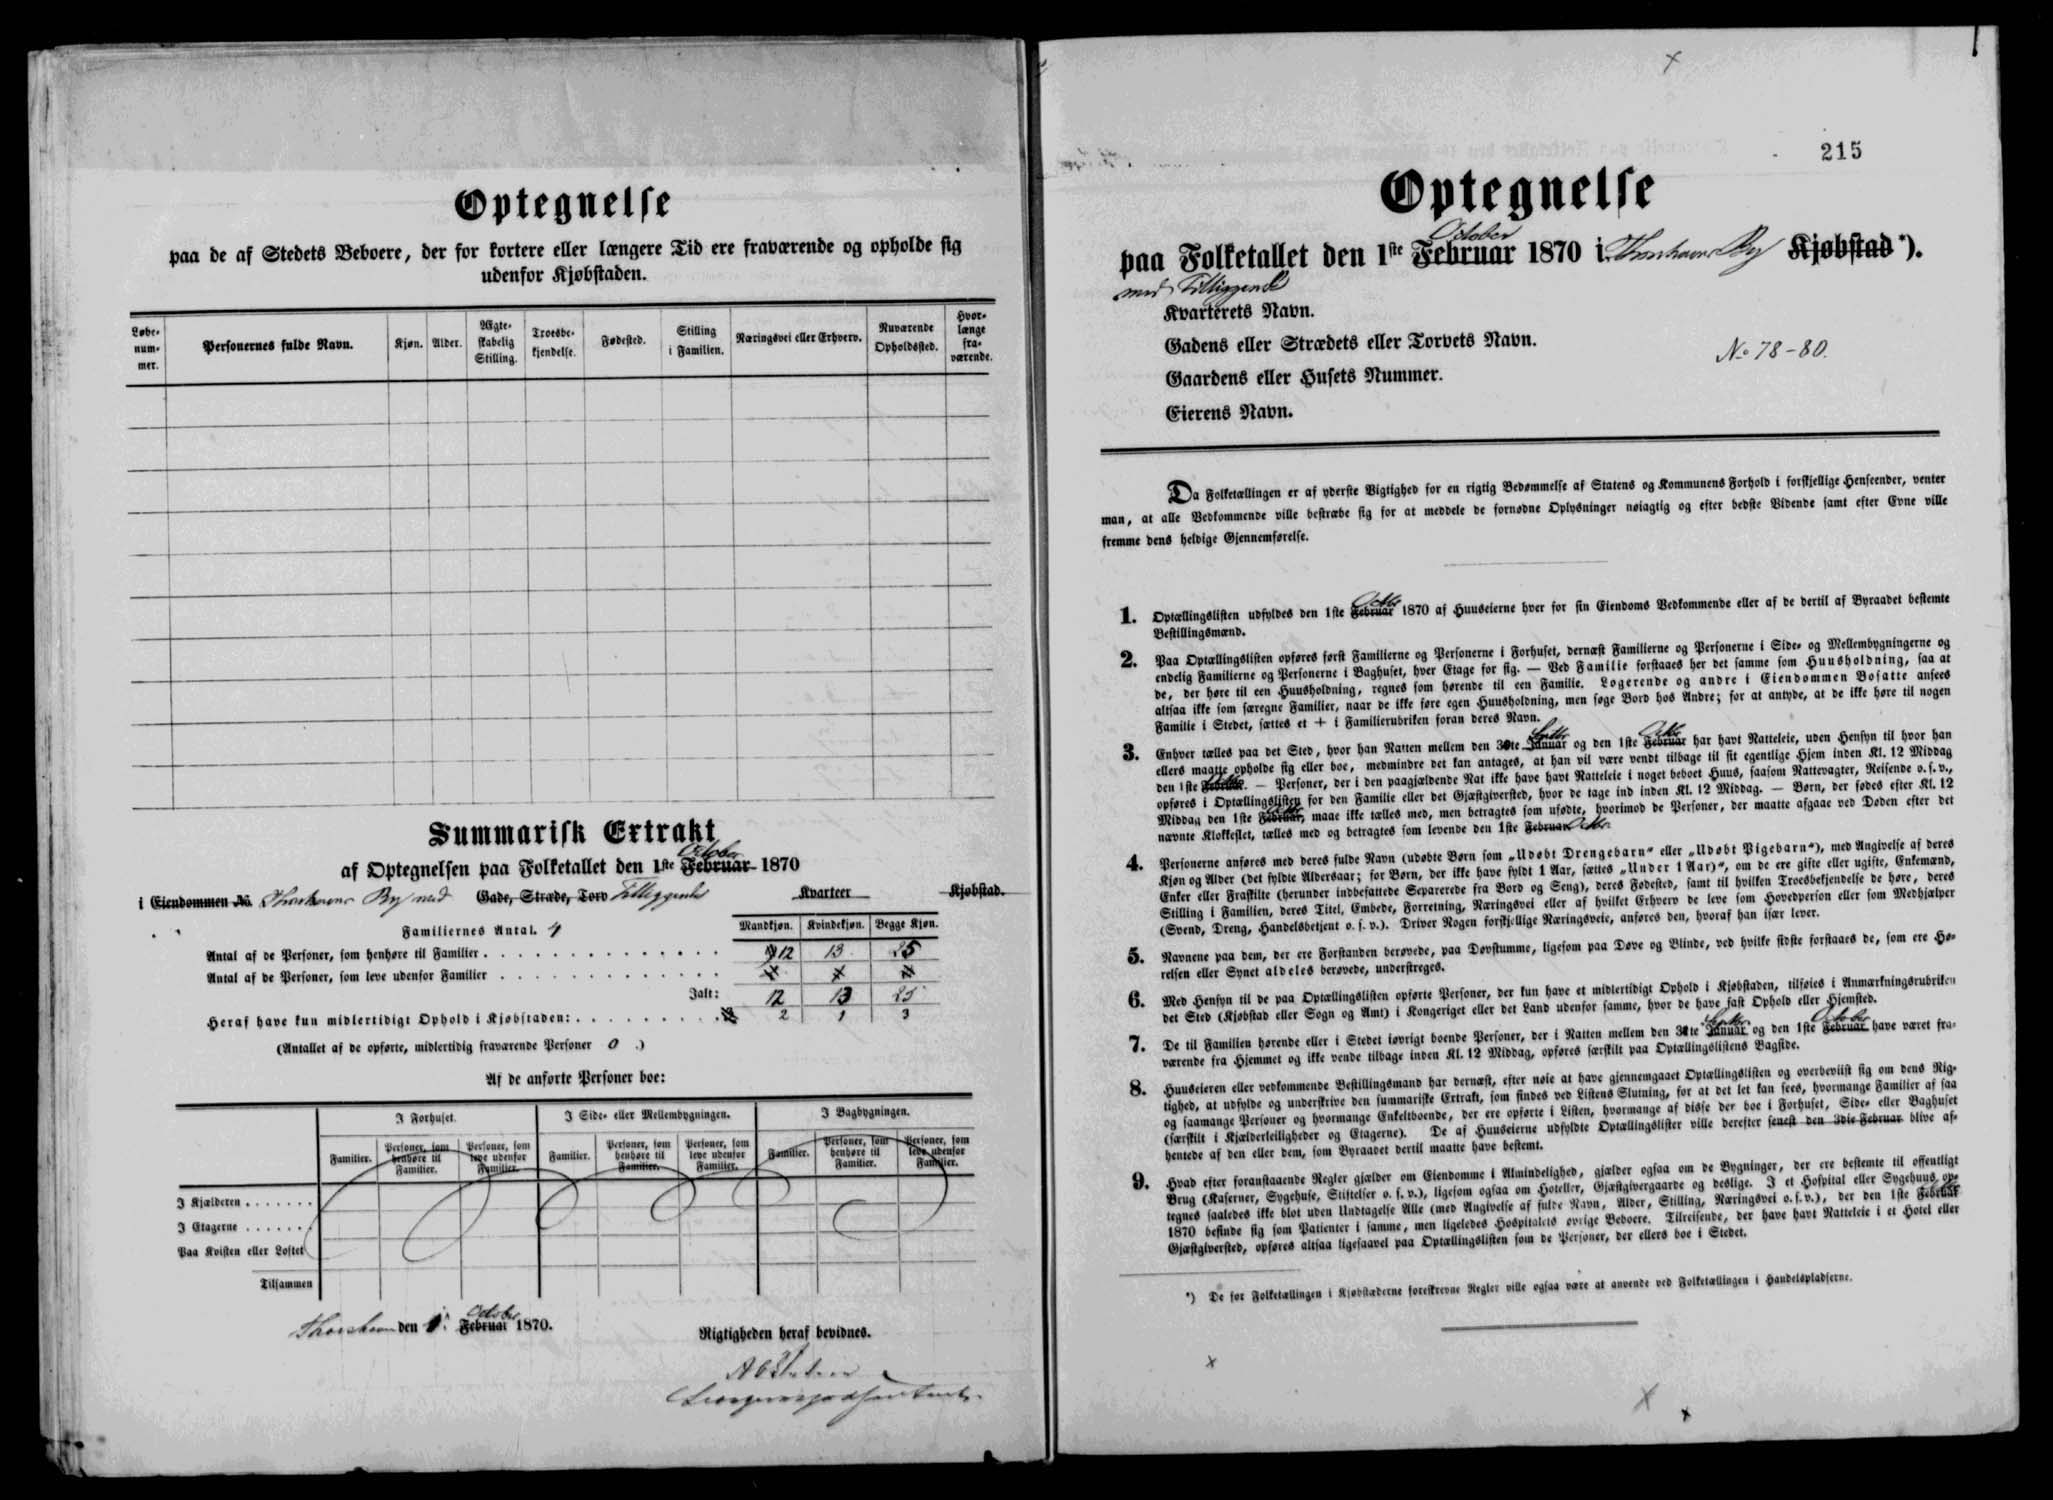 Optegnelse
paa de af Stedets Beboere, der for kortere eller længere Tid ere fraværende og opholde sig
udenfor Kjøbstaden.
Løbe-
num-
mer.
Personernes fulde Navn.
Kjøn.
Alder.
Ægte-
skabelig
Stilling.
Troesbe-
kjendelse.
Fødested.
Stilling
i Familien.
Næringsvei eller Erhverv.
Nuværende
Opholdssted.
Hvor-
længe
fra-
værende.
Summarisk Extrakt
October
af Optegnelsen paa Folketallet den 1ste Februar 1870
i Eiendommen No. Thorshavns By med Gade, Stræde, Torv Tilliggende Kvarteer Kjøbstad.
Familiernes Antal. 4
Mandkjøn. Kvindekjøn. Begge Kjøn.
Antal af de Personer, som henhøre til Familier 12 13 25
Antal af de Personer, som leve udenfor Familier
Ialt: 12 13 25
Heraf have kun midlertidigt Ophold i Kjøbstaden: 2 1 3
(Antallet af de opførte, midlertidig fraværende Personer 0 .)
Af de anførte Personer boe:
I Forhuset. I Side- eller Mellembygningen. I Bagbygningen.
Familier.
Personer, som
henhøre til
Familier.
Personer, som
leve udenfor
Familier.
Familier.
Personer, som
henhøre til
Familier.
Personer, som
leve udenfor
Familier.
Familier.
Personer, som
henhøre til
Familier.
Personer, som
leve udenfor
Familier.
I Kjælderen
I Etagerne
Paa Kvisten eller Loftet
Tilsammen
October
Thorshavn den 1. Februar 1870.
Rigtigheden heraf bevidnes.
215
Optegnelse
October
paa Folketallet den 1ste Februar 1870 i Thorshavns By Kjøbstad*).
med Tilliggende
Kvarterets Navn.
Gadens eller Strædets eller Torvets Navn.
No 78-80.
Gaardens eller Husets Nummer.
Eierens Navn.
Da Folketællingen er af yderste Vigtighed for en rigtig Bedømmelse af Statens og Kommunens Forhold i forskjellige Henseender, venter
man, at alle Vedkommende ville bestræbe sig for at meddele de fornødne Oplysninger nøiagtig og efter bedste Vidende samt efter Evne ville
fremme dens heldige Gjennemførelse.
1. Optællingslisten udfyldes den 1ste Februar 1870 af Huuseierne hver for sin Eiendoms Vedkommende eller af de dertil af Byraadet bestemte
Bestillingsmænd.
2. Paa Optællingslisten opføres først Familierne og Personerne i Forhuset, dernæst Familierne og Personerne i Side- og Mellembygningerne og
endelig Familierne og Personerne i Baghuset, hver Etage for sig. — Ved Familie forstaaes her det samme som Huusholdning, saa at
de, der høre til een Huusholdning, regnes som hørende til een Familie. Logerende og andre i Eiendommen Bosatte ansees
altsaa ikke som særegne Familier, naar de ikke føre egen Huusholdning, men søge Bord hos Andre; for at antyde, at de ikke høre til nogen
Familie i Stedet, sættes et + i Familierubriken foran deres Navn.
3. Enhver tælles paa det Sted, hvor han Natten mellem den 30te Januar og den 1ste Februar har havt Natteleie, uden Hensyn til hvor han
ellers maatte opholde sig eller boe, medmindre det kan antages, at han vil være vendt tilbage til sit egentlige Hjem inden Kl. 12 Middag
den 1ste Februar. — Personer, der i den paagjældende Nat ikke have havt Natteleie i noget beboet Huus, saasom Nattevagter, Reisende o. s. v.,
opføres i Optællingslisten for den Familie eller det Gjæstgiversted, hvor de tage ind inden Kl. 12 Middag. — Børn, der fødes efter Kl. 12
Middag den 1ste Februar, maae ikke tælles med, men betragtes som ufødte, hvorimod de Personer, der maatte afgaae ved Døden efter det
nævnte Klokkeslet, tælles med og betragtes som levende den 1ste Februar Octbr.
4. Personerne anføres med deres fulde Navn (udøbte Børn som „Udøbt Drengebarn" eller „Udøbt Pigebarn"), med Angivelse af deres
Kjøn og Alder (det fyldte Aldersaar; for Børn, der ikke have fyldt 1 Aar, sættes „Under 1 Aar)", om de ere gifte eller ugifte, Enkemænd,
Enker eller Fraskilte (herunder indbefattede Separerede fra Bord og Seng), deres Fødested, samt til hvilken Troesbekjendelse de høre, deres
Stilling i Familien, deres Titel, Embede, Forretning, Næringsvei eller af hvilket Erhverv de leve som Hovedperson eller som Medhjælper
(Svend, Dreng, Handelsbetjent o. s. v.). Driver Nogen forskjellige Næringsveie, anføres den, hvoraf han især lever.
5. Navnene paa dem, der ere Forstanden berøvede, paa Døvstumme, ligesom paa Døve og Blinde, ved hvilke sidste forstaaes de, som ere Hø-
relsen eller Synet aldeles berøvede, understreges.
6. Med Hensyn til de paa Optællingslisten opførte Personer, der kun have et midlertidigt Ophold i Kjøbstaden, tilføies i Anmærkningsrubriken
det Sted (Kjøbstad eller Sogn og Amt) i Kongeriget eller det Land udenfor samme, hvor de have fast Ophold eller Hjemsted.
7. De til Familien hørende eller i Stedet iøvrigt boende Personer, der i Natten mellem den 31te Januar og den 1ste Februar have været fra-
værende fra Hjemmet og ikke vende tilbage inden Kl. 12 Middag, opføres særskilt paa Optællingslistens Bagside.
8. Huuseieren eller vedkommende Bestillingsmand har dernæst, efter nøie at have gjennemgaaet Optællingslisten og overbeviist sig om dens Rig-
tighed, at udfylde og underskrive den summariske Extrakt, som findes ved Listens Slutning, for at det let kan sees, hvormange Familier af saa
og saamange Personer og hvormange Enkeltboende, der ere opførte i Listen, hvormange af disse der boe i Forhuset, Side- eller Baghuset
(særskilt i Kjælderleiligheder og Etagerne). De af Huuseierne udfyldte Optællingslister ville derefter senest den 3die Februar blive af-
hentede af den eller dem, som Byraadet dertil maatte have bestemt.
9. Hvad efter foranstaaende Regler gjælder om Eiendomme i Almindelighed, gjælder ogsaa om de Bygninger, der ere bestemte til offentligt
Brug (Kaserner, Sygehuse, Stiftelser o. s. v.), ligesom ogsaa om Hoteller, Gjæstgivergaarde og deslige. I et Hospital eller Sygehuus op-
tegnes saaledes ikke blot uden Undtagelse Alle (med Angivelse af fulde Navn, Alder, Stilling, Næringsvei o. s. v.), der den 1ste Februar
1870 befinde sig som Patienter i samme, men ligeledes Hospitalets øvrige Beboere. Tilreisende, der have havt Natteleie i et Hotel eller
Gjæstgiversted, opføres altsaa ligesaavel paa Optællingslisten som de Personer, der ellers boe i Stedet.
*) De for Folketællingen i Kjøbstæderne foreskrevne Regler ville ogsaa være at anvende ved Folketællingen i Handelspladserne.